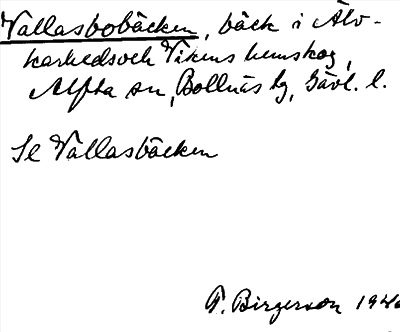 Vallasbobäcken, bäck i Älv-
karhed och Vikens hemskog,
Alfta sn, Bollnäs tg, Gävl. l.
Se Vallasbäcken
P. Birgerson